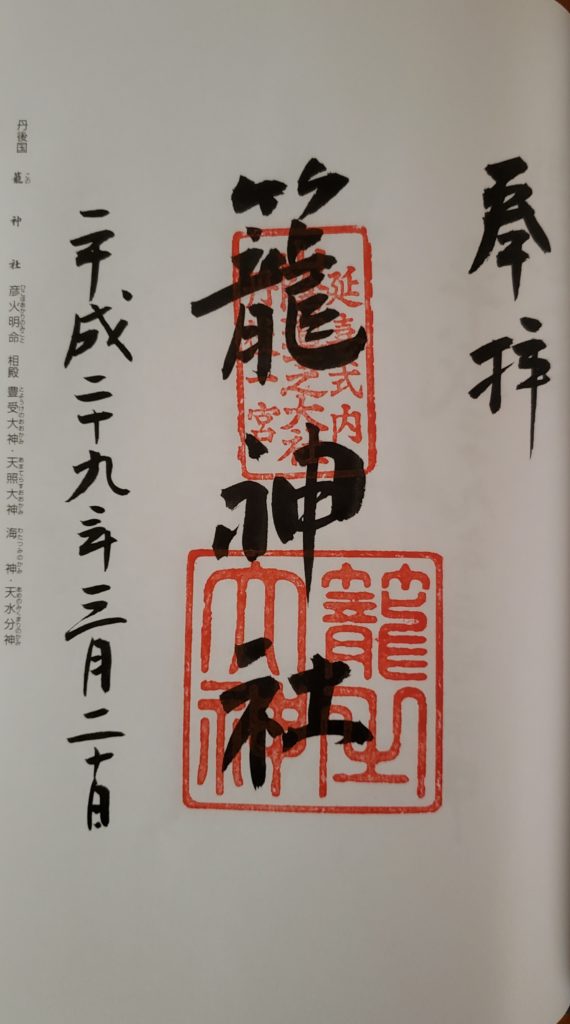 奉拝
籠神社
延喜式内
之大社
一宮
大神
平成二十九年三月二十日
丹後国 籠神社 彦火明命 相殿 豊受大神・天照大神 海神・天水分神